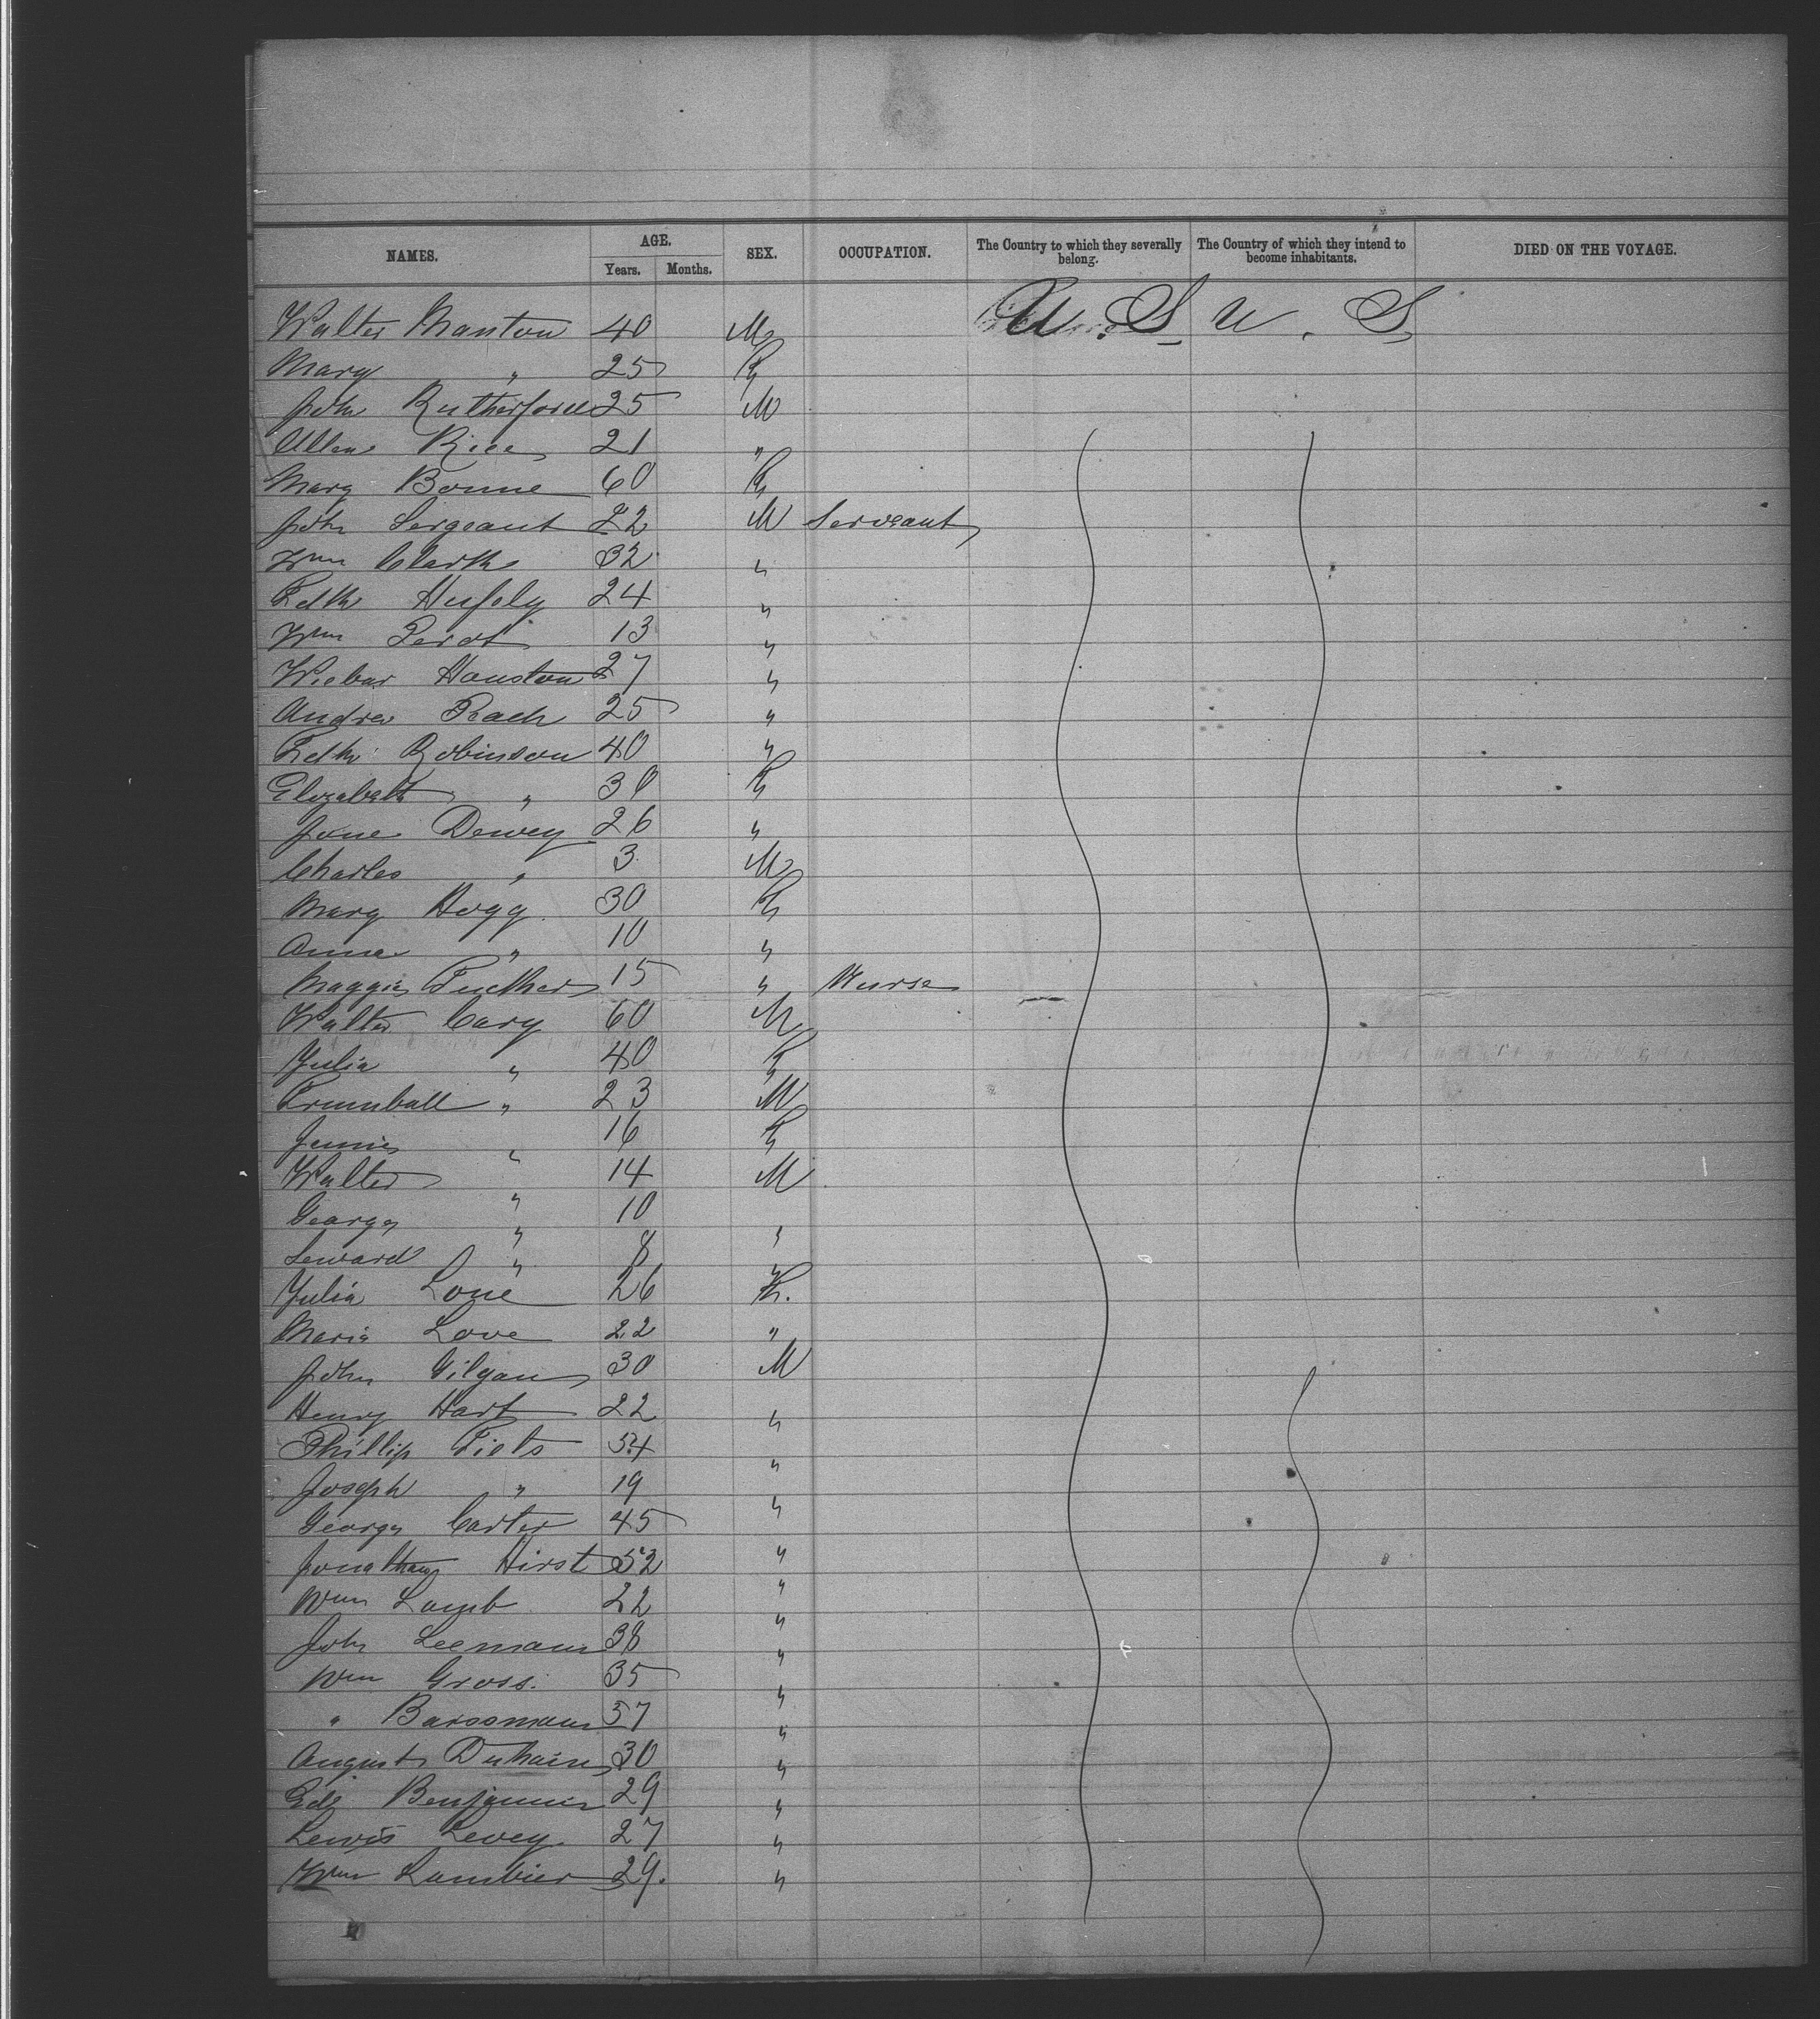 NAMES. AGE. SEX. OCCUPATION. The Country to which they severally belong. The Country of which they intend to become inhabitants. DIED ON THE VOYAGE.
Years. Months.
Walter Manton 40 M U.S U.S
Mary " 25 F
John Rutherford 25 M
Allen Rice 21 "
Mary Bonne 60 F
John Sergeant 22 M Servant
Wm Clark 32 "
24 "
Wm Perot 13 "
Houston 27 "
Andrew 25 "
Robinson 40 "
Elizabeth " 30 F
Jane Dewey 26 "
Charles " 3 M
Mary Hogg 30 F
Anna " 10 "
Maggie 15 " Nurse
Walter Cary 60 M
Julia " 40 F
Trumball " 23 M
Jennie " 16 F
Walter " 14 M
George " 10 "
Seward " 8 "
Julia Love 26 F.
Maria Love 22 "
John Gilgan 30 M
Henry Hart 22 "
Phillip 54 "
Joseph " 19 "
George Carter 45 "
Jonathan Hirst 52 "
Wm Lamb 22 "
John Leemann 38 "
Wm Gross. 35 "
" 37 "
August 30 "
Ed. Benjamin 29 "
Lewis Levey. 27 "
Wm Lambier 29. "